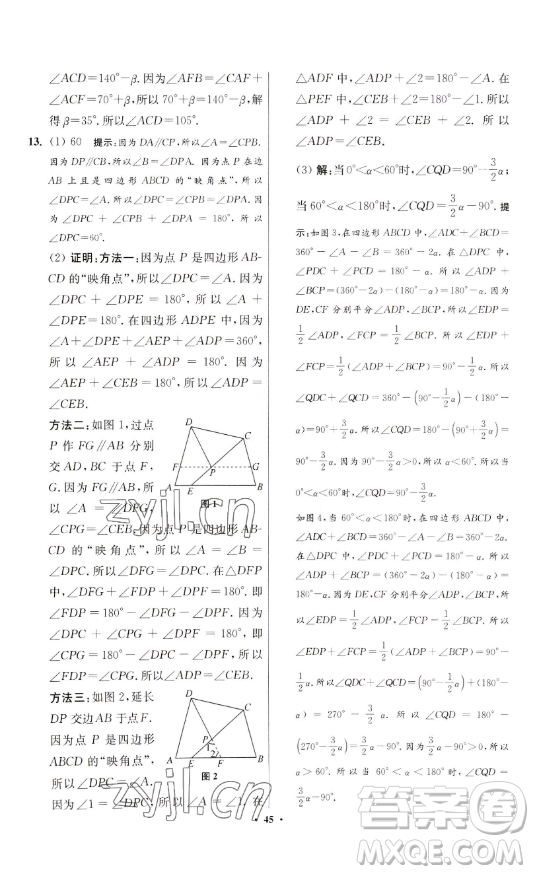 ∠ACD=140°-β. 因为∠AFB=∠CAF+
∠ACF=70°+β, 所以 70°+β=140°-β, 解
得 β=35°. 所以∠ACD=105°.
13. (1) 60 提示:因为 DA∥CP, 所以∠A=∠CPB.
因为 DP∥CB, 所以∠B=∠DPA. 因为点 P 在边
AB 上且是四边形 ABCD 的“映角点”, 所以
∠DPC=∠A. 所以∠DPC=∠CPB=∠DPA. 因
为∠DPC+∠CPB+∠DPA=180°. 所以
∠DPC=60°.
(2) 证明:方法一:因为点 P 是四边形 AB-
CD 的“映角点”, 所以∠DPC=∠A. 因为
∠DPC+∠DPE=180°, 所以∠A+
∠DPE=180°. 在四边形 ADPE 中, 因为
∠A+∠DPE+∠AEP+∠ADP=360°,
所以∠AEP+∠ADP=180°. 因为
∠AEP+∠CEB=180°, 所以∠ADP=
∠CEB.
方法二:如图 1, 过点
P 作 FG∥AB 分别
交 AD, BC 于点 F,
G. 因为 FG∥AB, 所
以∠A=∠DFG,
∠CPG=∠CEB. 因为点 P 是四边形 AB-
CD 的“映角点”, 所以∠DPC=∠A. 所
以∠DFG=∠DPC. 在△DFP 中, 因为
∠FDP+∠DFG+∠DPF=180°. 即
∠FDP=180°-∠DFG-∠DPF. 因为
∠CPG=180°-∠DPC-∠DPF, 即
∠CPG=180°-∠DFG-∠DPF, 所以
∠FDP=∠CPG. 所以∠ADP=∠CEB.
方法三:如图 2, 延长
DP 交边 AB 于点 F.
因为点 P 是四边形
ABCD 的“映角点”,
所以∠DPC=∠A.
因为∠1=∠DPC, 所以∠A=∠1. 在
D
C
F
P
G
A
E
B
图 1
D
C
P
1
2
A
E
F
B
图 2
△ADF 中, ∠ADP+∠2=180°-∠A. 在
△PEF 中, ∠CEB+∠2=180°-∠1. 所
以∠ADP+∠2=∠CEB+∠2. 所以
∠ADP=∠CEB.
(3) 解:当 0°<α<60°时, ∠CQD=90°-3/2α;
当 60°<α<180°时, ∠CQD=3/2α-90°. 提
示:如图 3, 在四边形 ABCD 中, ∠ADC+∠BCD=
360°-∠A-∠B=360°-2α. 在△DPC 中,
∠PDC+∠PCD=180°-α. 所以∠ADP+
∠BCP=(360°-2α)-(180°-α)=180°-α. 因为
DE, CF 分别平分∠ADP, ∠BCP, 所以∠EDP=
1/2∠ADP, ∠FCP=1/2∠BCP. 所以∠EDP+
∠FCP=1/2(∠ADP+∠BCP)=90°-1/2α. 所以
∠QDC+∠QCD=360°-(90°-1/2α)-(180°-
α)=90°+3/2α. 所以∠CQD=180°-(90°+3/2α)=
90°-3/2α. 因为 90°-3/2α>0°, 所以 α<60°. 所以当
0°<α<60°时, ∠CQD=90°-3/2α.
如图 4, 当 60°<α<180°时, 在四边形 ABCD 中,
∠ADC+∠BCD=360°-∠A-∠B=360°-2α.
在△DPC 中, ∠PDC+∠PCD=180°-α. 所以
∠ADP+∠BCP=(360°-2α)-(180°-α)=
180°-α. 因为 DE, CF 分别平分∠ADP, ∠BCP,
所以∠EDP=1/2∠ADP, ∠FCP=1/2∠BCP. 所
以∠EDP+∠FCP=1/2(∠ADP+∠BCP)=90°-
1/2α. 所以∠QDC+∠QCD=(90°-1/2α)+(180°-
α)=270°-3/2α. 所以∠CQD=180°-
(270°-3/2α)=3/2α-90°. 因为3/2α-90°>0°, 所以
α>60°. 所以当 60°<α<180°时, ∠CQD=
3/2α-90°.
· 45 ·
zyjl.cn
zyjl.cn
答案圈